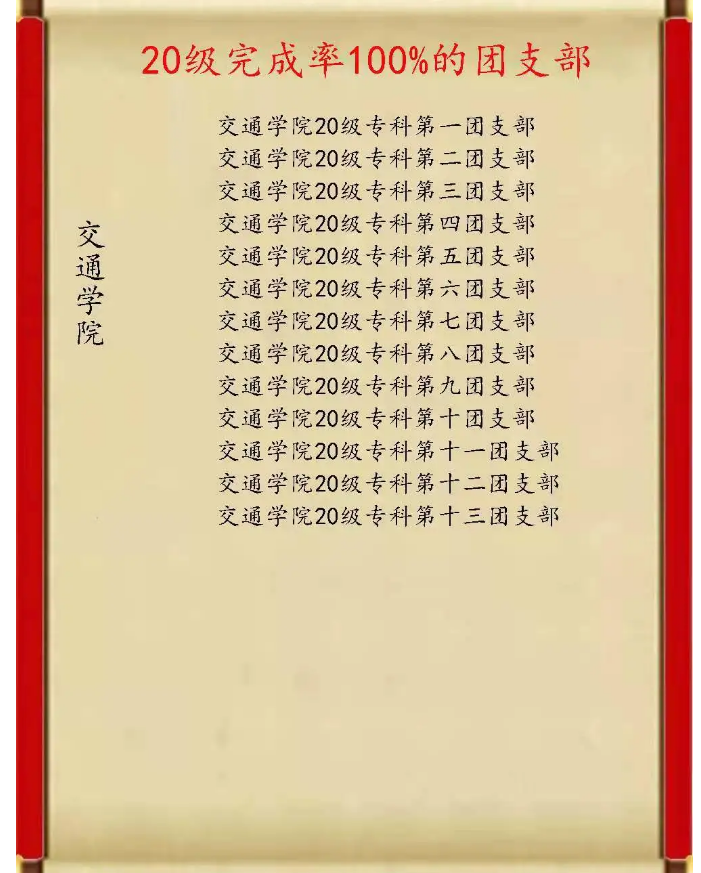 20级完成率100%的团支部
交通学院
交通学院20级专科第一团支部
交通学院20级专科第二团支部
交通学院20级专科第三团支部
交通学院20级专科第四团支部
交通学院20级专科第五团支部
交通学院20级专科第六团支部
交通学院20级专科第七团支部
交通学院20级专科第八团支部
交通学院20级专科第九团支部
交通学院20级专科第十团支部
交通学院20级专科第十一团支部
交通学院20级专科第十二团支部
交通学院20级专科第十三团支部